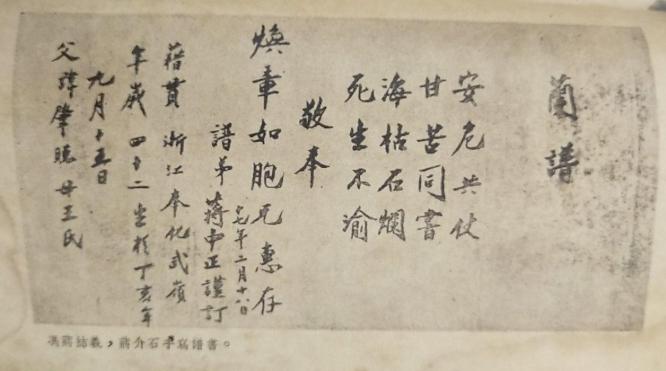 蘭譜
安危共仗
甘苦同嘗
海枯石爛
死生不渝
敬奉
煥章如胞兄惠存
譜弟蔣中正謹訂
十七年二月十八日
籍貫浙江奉化武嶺
年歲四十二生於丁亥年
九月十五日
父諱肇聰母王氏
馮蔣結義，蔣介石手寫譜書。